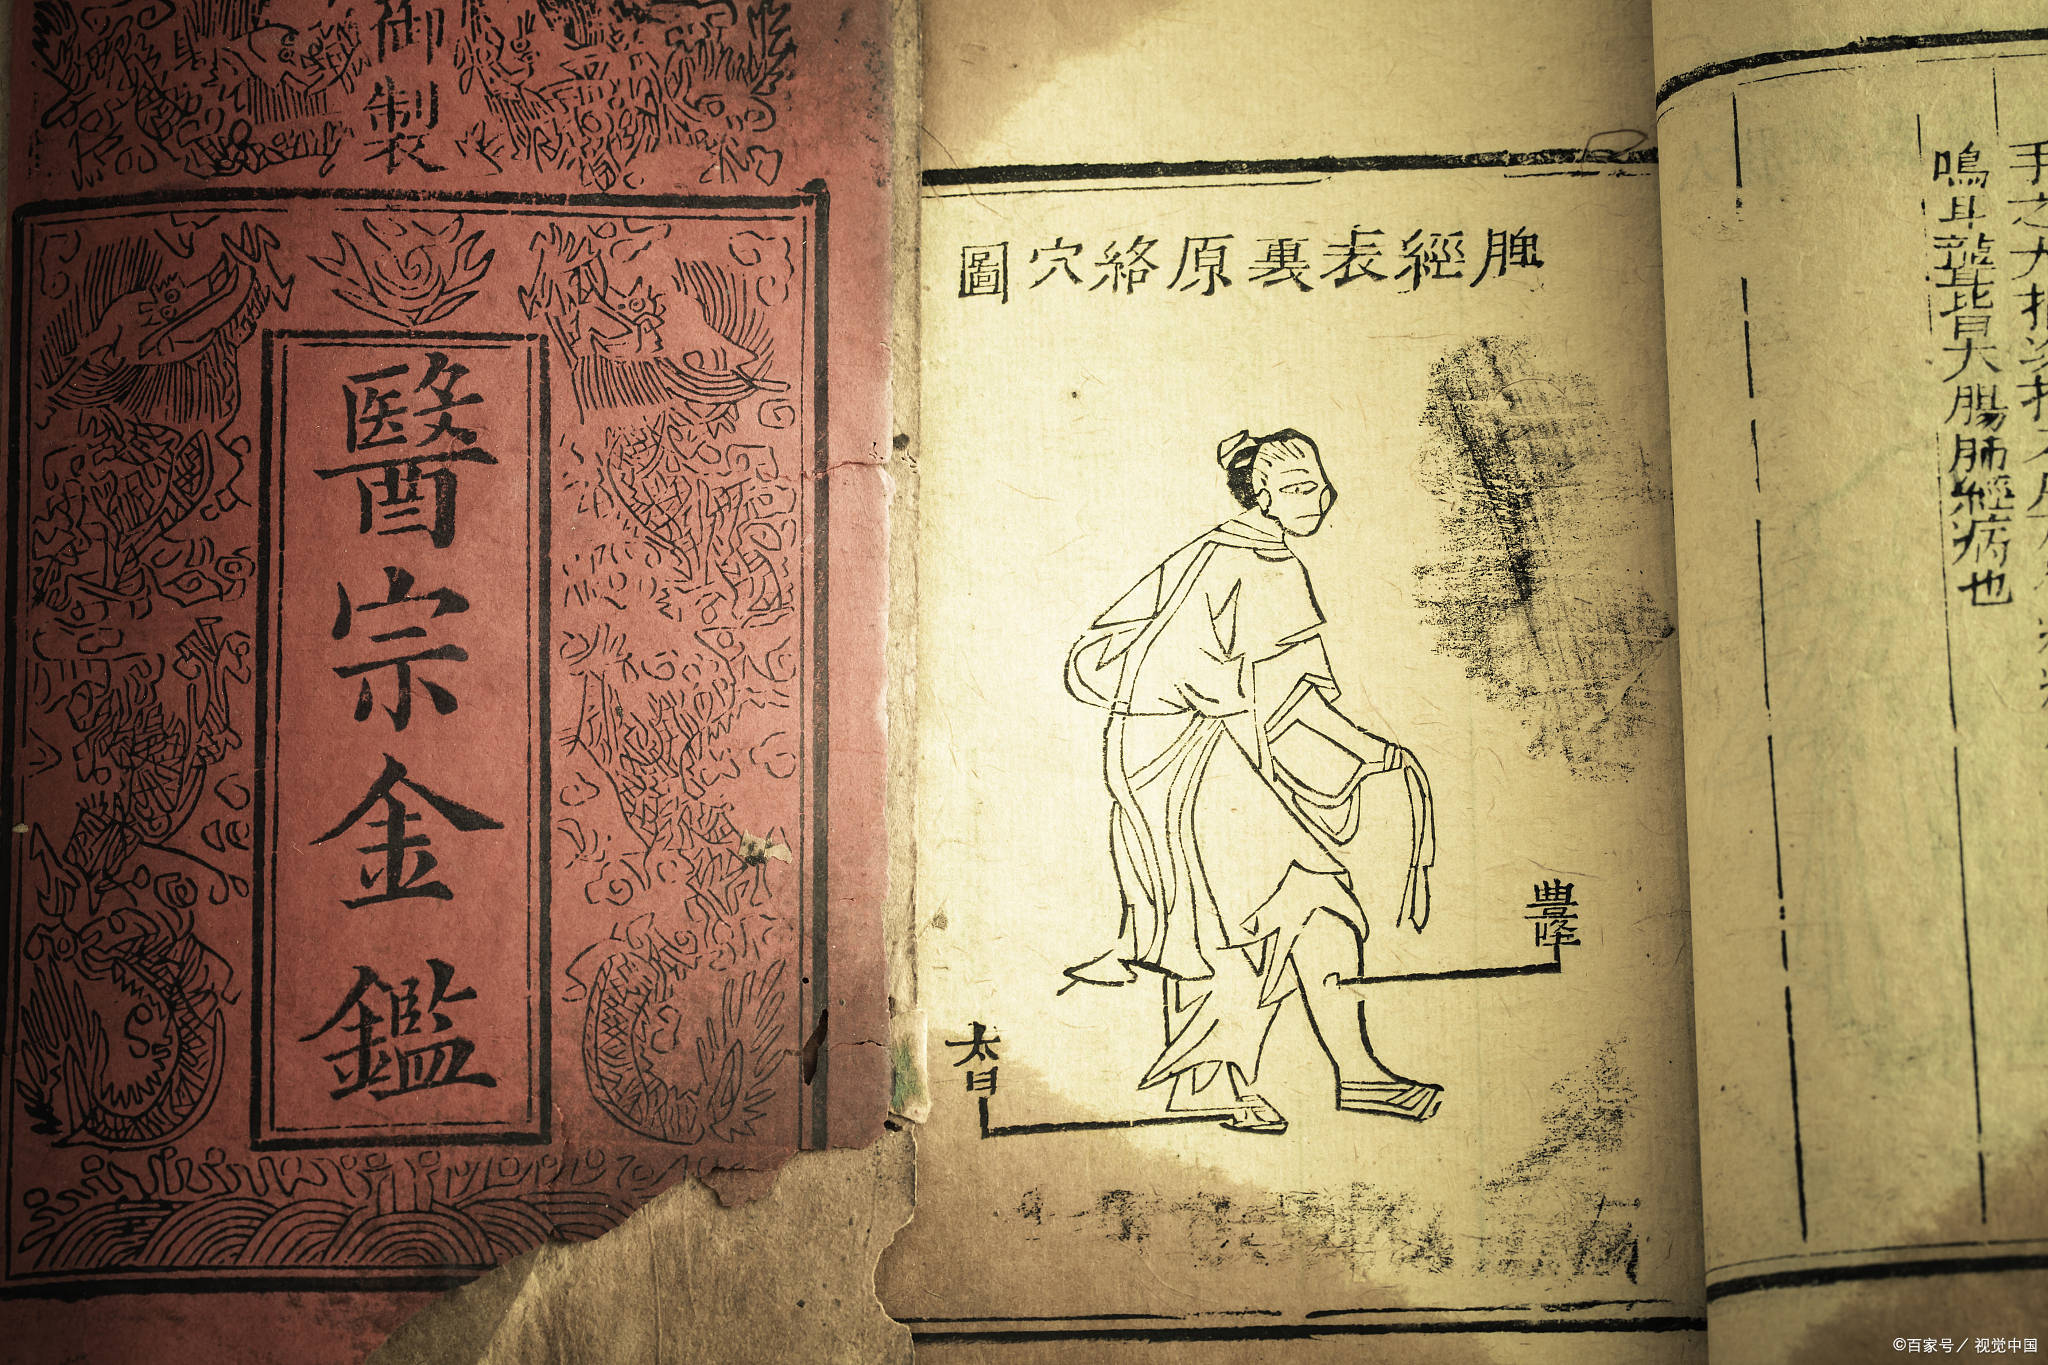 御製
醫宗金鑑
脾經表裏原絡穴圖
豐隆
太白
鳴耳聾皆大腸肺經病也
©百家号／视觉中国